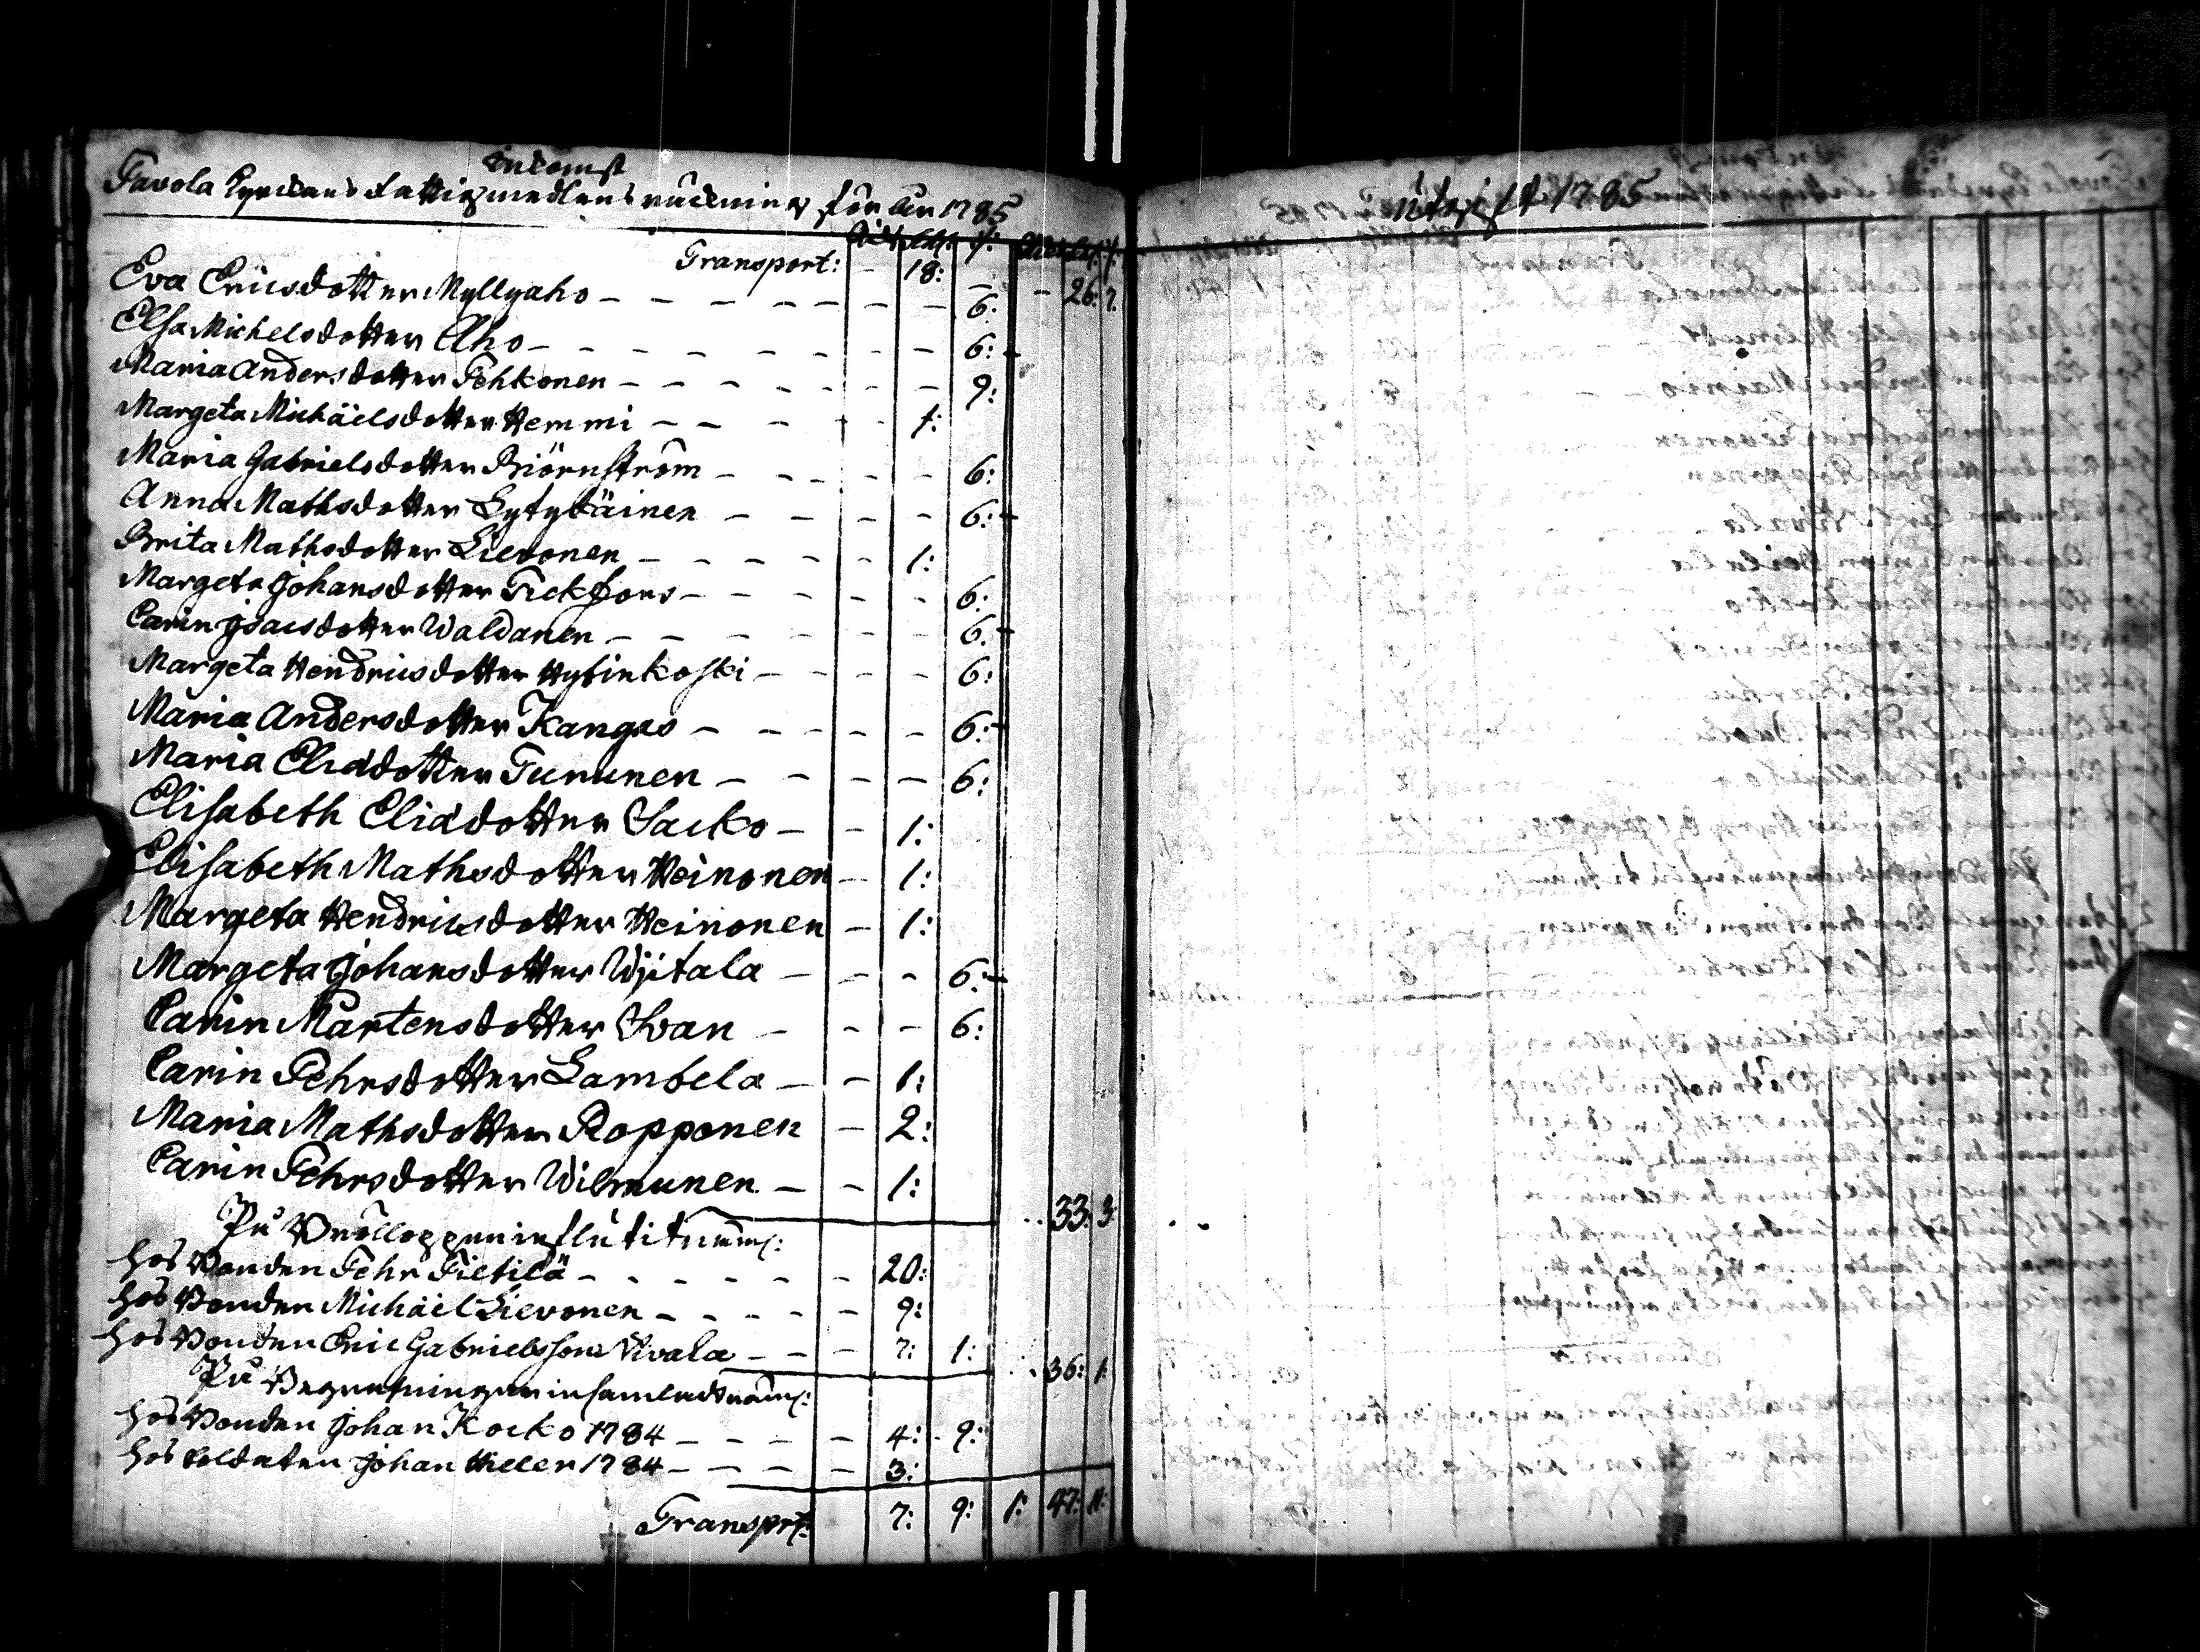 Inkomst
Pavola Kyrckans fattigmedlens räckning för år 1785
Rd sk. r: Rd sk: r:
Transport: - 18: - - 26: 7.
Eva Ericsdotter Myllyaho - - - - 6:
Elsa Michelsdotter Alho - - - - 6:
Maria Andersdotter Pehkonen - - - - 9:
Margeta Michäelsdotter Hemmi - - - 1:
Maria Gabrielsdotter Biörnström - - - 6:
Anna Mathsdotter Lytykäinen - - - 6:
Brita Mathsdotter Lievonen - - - 1:
Margeta Johansdotter - - - 6:
Carin Isacsdotter Waldanen - - - 6:
Margeta Hendricsdotter Hytinkoski - - - 6:
Maria Andersdotter Kangas - - - 6:
Maria Eliædotter Turunen - - - 6:
Elisabeth Eliædotter Sacko - - 1:
Elisabeth Mathsdotter Heinonen - 1:
Margeta Hendricsdotter Heinonen - 1:
Margeta Johansdotter Wjitala - - - 6:
Carin Mårtensdotter Svan - - - 6:
Carin Pehrsdotter Lambela - - 1:
Maria Mathsdotter Ropponen - 2:
Carin Pehrsdotter Wilmunen - - 1:
33: 3:
På Brölloppen influtit näml:
hos Bonden Pehr Pietilä - - - 20:
hos Bonden Michäel Lievonen - - - 9:
hos Bonden Eric Gabrielsson Avala - - - 7: 1:
36: 1:
På Begrafningar insamladt näml:
hos Bonden Johan Kocko 1784 - - - 4: 9:
hos Soldaten Johan Heller 1784 - - - 3:
Transprt: 7: 9: 1: 47: 11:
Utgift 1785